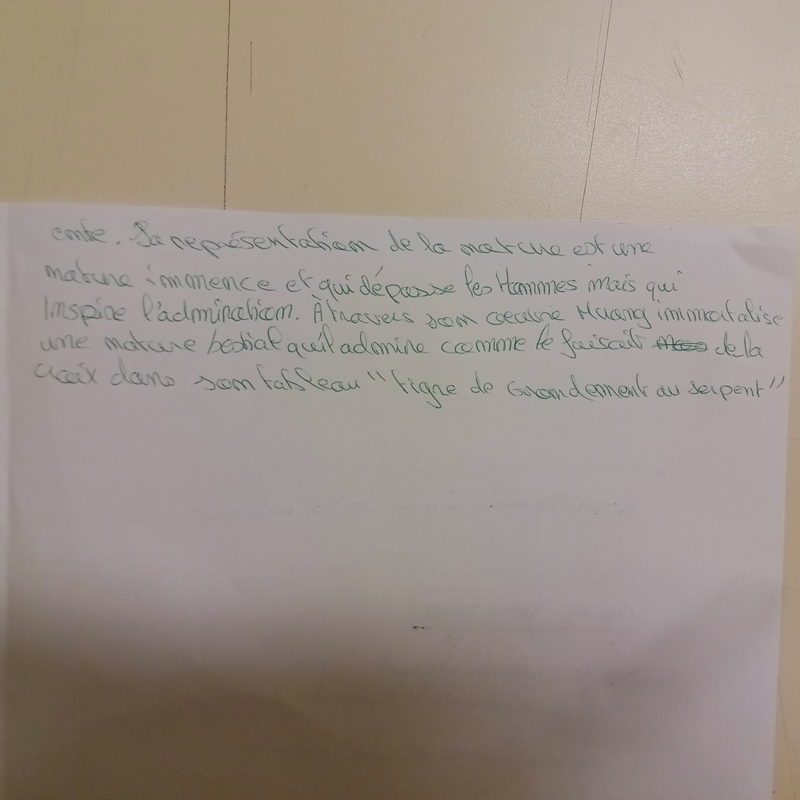 entre. Sa représentation de la nature est une
nature immence et qui dépasse les Hommes mais qui
Inspire l'admiration. À travers son oeuvre Huang immortalise
une nature bestial qu'il admire comme le faisait de la
croix dans son tableau "tigre de Grondement au serpent"